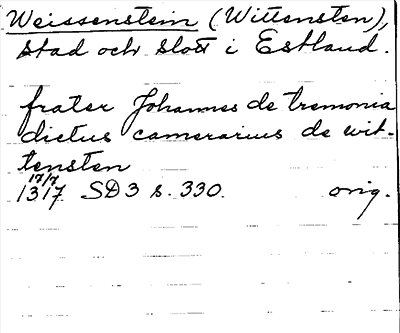 Weissenstein (Wittensten),
stad och slott i Estland.
frater Johannes de tremonia
dictus camerarius de wit-
tensten
17/7
1317 SD 3 s. 330. orig.